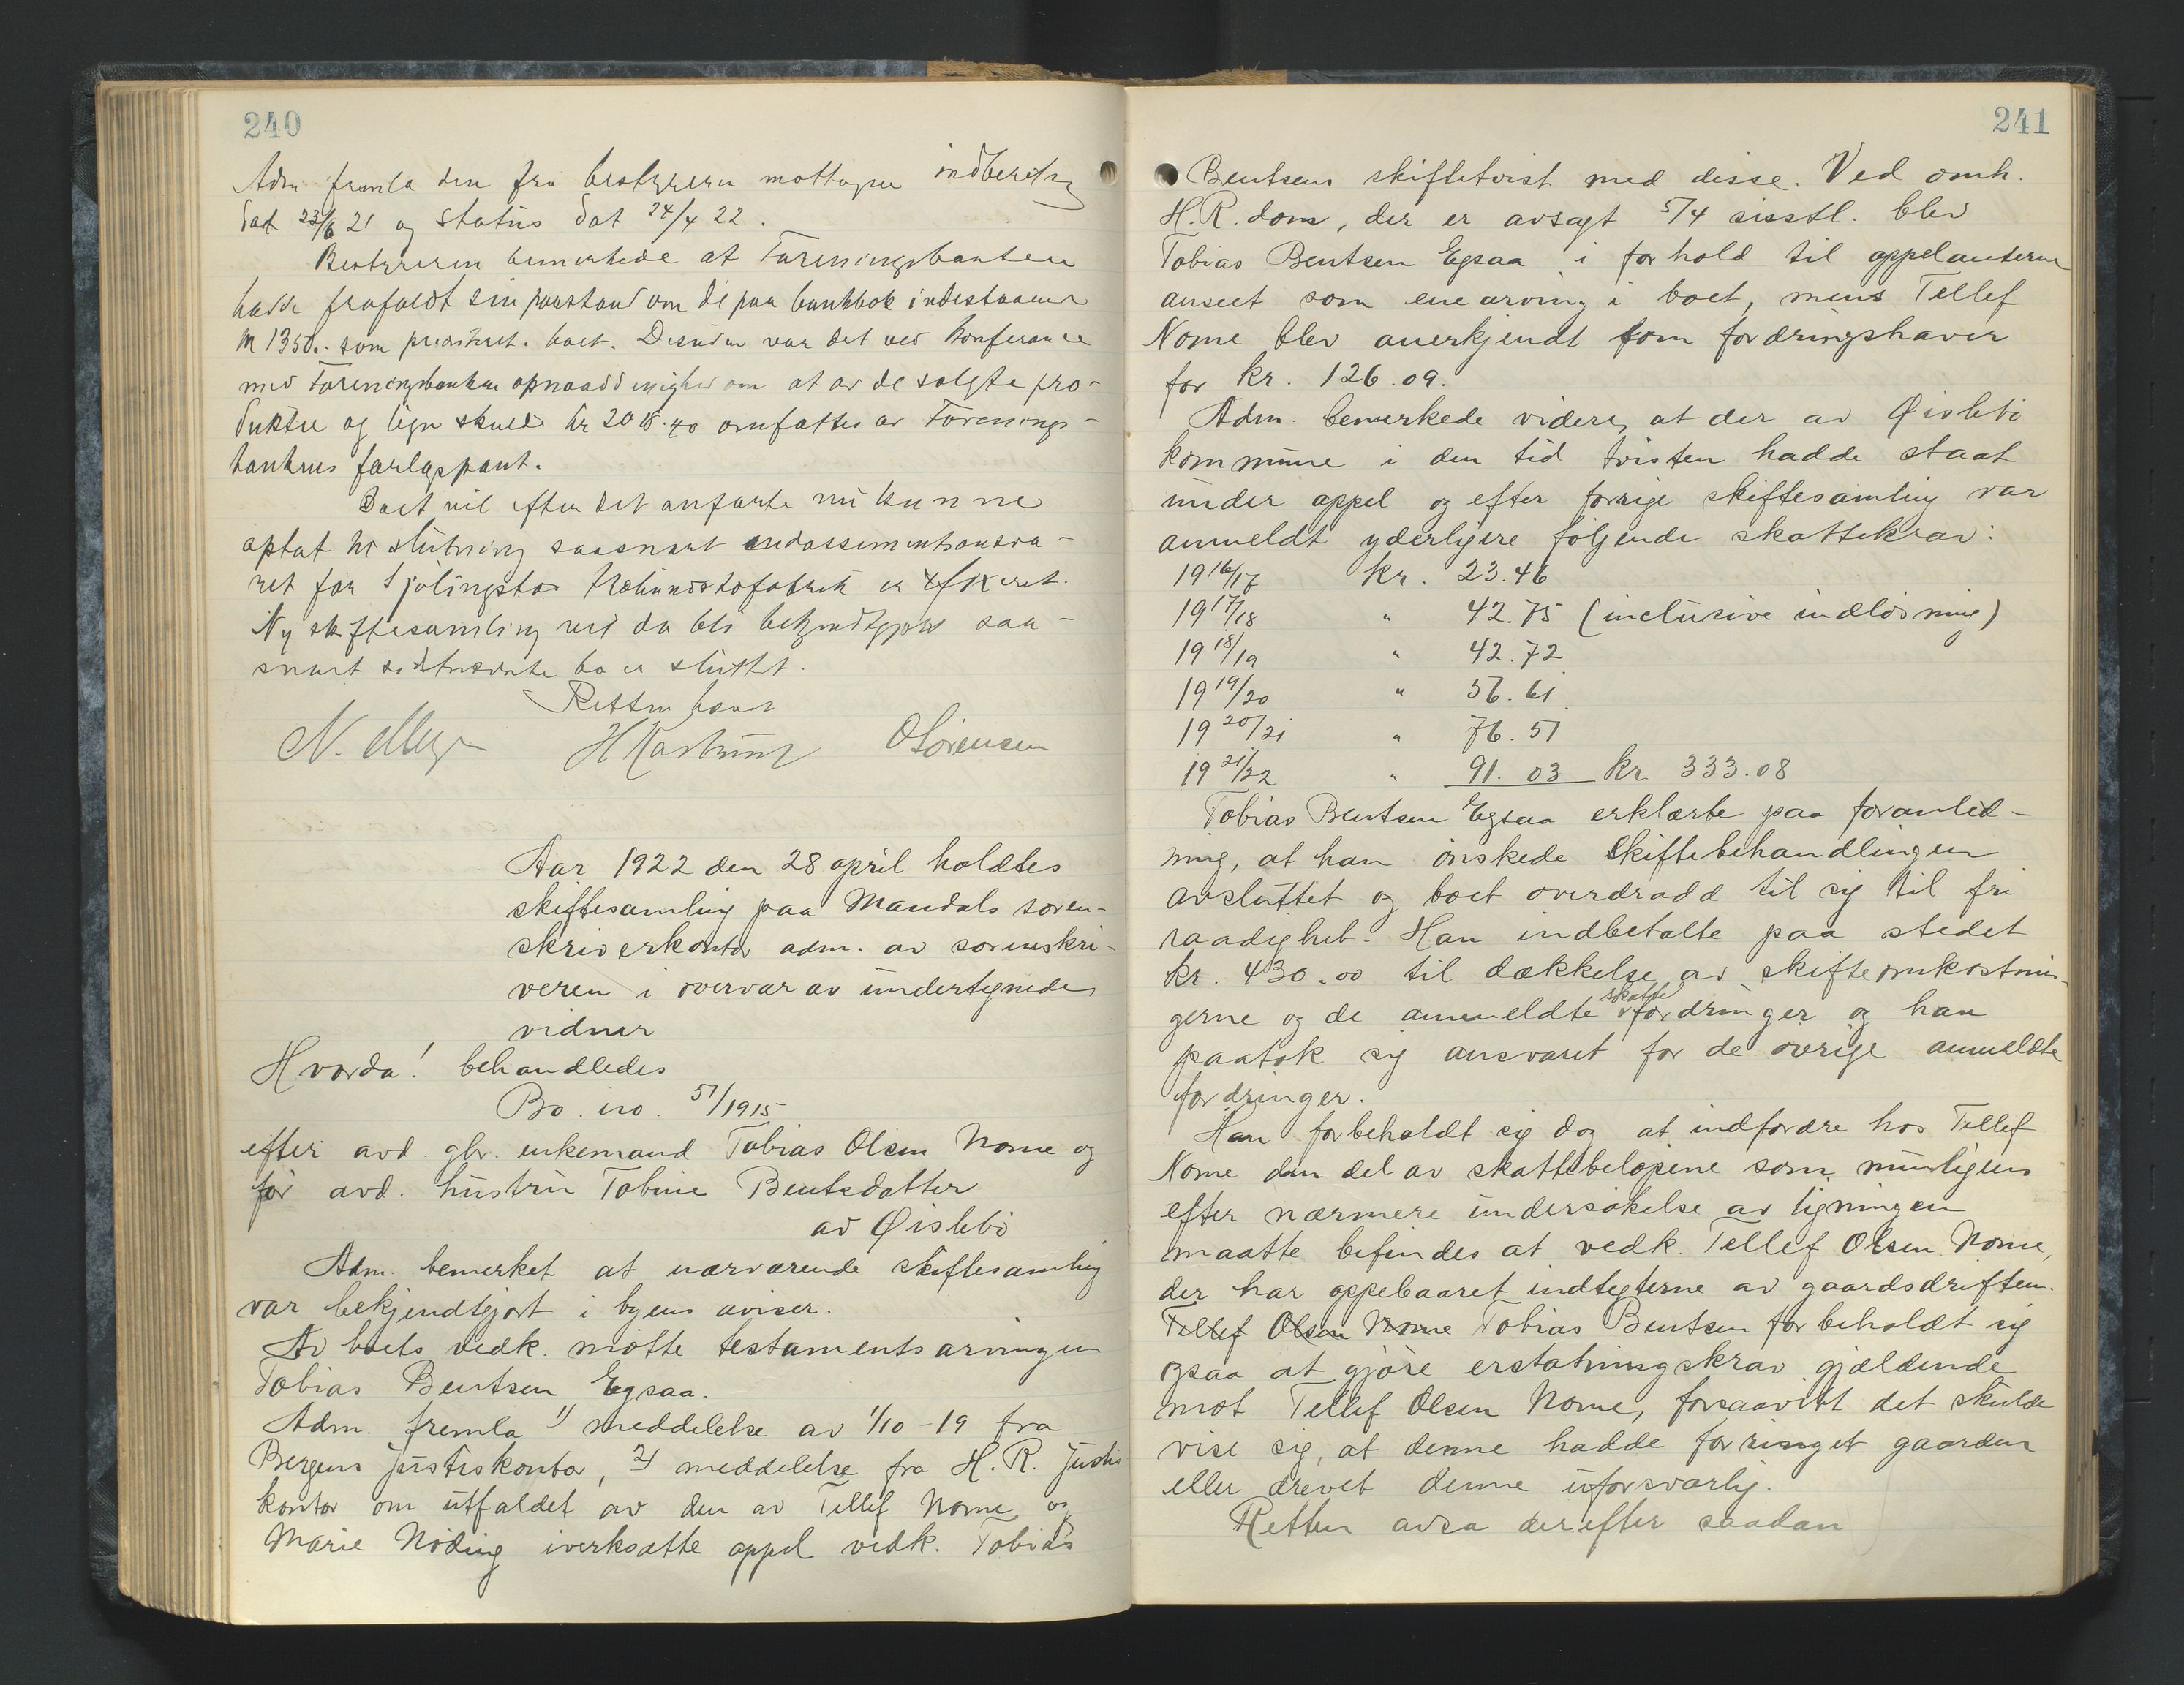 240
Adm fremla den fra bestyreren mottagne indberetng
dat 23/6 21 og status dat 24/4 22.
Bestyreren bemerkede at Foreningsbanken
hadde frafaldt sin paastand om de paa bankbok indestaaende
kr 1350.- som prioritert i boet. Desuden var det ved konferance
med Foreningsbanken opnaadd enighed om at av de solgte pro-
dukter og lign skulde kr 2018.40 omfattes av Forenings-
bankens forlagspant.
Boet vil efter det anførte nu kunne
optat til slutning saasnart endossementsansva-
ret for Sjølingstad Uldvarefabrik er fixeret.
Ny skiftesamling vil da bli bekjendtgjort saa-
snart sidstnævnte bo er sluttet.
Retten hævet
N. Meyer H Kastrup O Sørensen
Aar 1922 den 28 april holdtes
skiftesamling paa Mandals soren-
skriverkontor adm. av sorenskri-
veren i overvær av undertegnede
vidner
Hvorda! behandledes
Bo. no. 51/1915
efter avd. gbr. enkemand Tobias Olsen Nome og
før avd. hustru Tobine Bentsdatter
av Øislebø
Adm. bemerket at nærværende skiftesamling
var bekjendtgjort i byens aviser.
Av boets vedk. møtte testamentsarvingen
Tobias Bentsen Egsaa.
Adm. fremla 1) meddelelse av 1/10-19 fra
Bergens justiskontor, 2) meddelelse fra H.R. justis
kontor om utfaldet av den av Tellef Nome og
Marie Nøding iverksatte appel vedk. Tobias
241
Bentsens skiftetvist med disse. Ved omh.
H.R. dom, der er avsagt 5/4 sisstl. blev
Tobias Bentsen Egsaa i forhold til appelanterne
anseet som enearving i boet, mens Tellef
Nome blev anerkjendt som fordringshaver
for kr. 126.09.
Adm. bemerkede videre, at der av Øislebø
kommune i den tid tvisten hadde staat
under appel og efter forrige skiftesamling var
anmeldt yderligere følgende skattekrav:
1916/17 kr. 23.46
1917/18 " 42.75 (inclusive indløsning)
1918/19 " 42.72
1919/20 " 56.61
1920/21 " 76.51
1921/22 " 91.03 kr 333.08
Tobias Bentsen Egsaa erklærte paa foranled-
ning, at han ønskede skiftebehandlingen
avsluttet og boet overdradd til sig til fri
raadighet. Han indbetalte paa stedet
kr. 430.00 til dækkelse av skifteomkostnin-
gerne og de anmeldte skattefordringer og han
paatok sig ansvaret for de øvrige anmeldte
fordringer.
Han forbeholdt sig dog at indfordre hos Tellef
Nome den del av skattebeløpene som muligens
efter nærmere undersøkelse av ligningen
maatte befindes at vedk. Tellef Olsen Nome,
der har oppebaaret indtegterne av gaardsdriften.
Tellef Olsen Nome Tobias Bentsen forbeholdt sig
ogsaa at gjøre erstatningskrav gjældende
mot Tellef Olsen Nome, forsaavitt det skulde
vise sig, at denne hadde forringet gaarden
eller drevet denne uforsvarlig.
Retten avsa derefter saadan